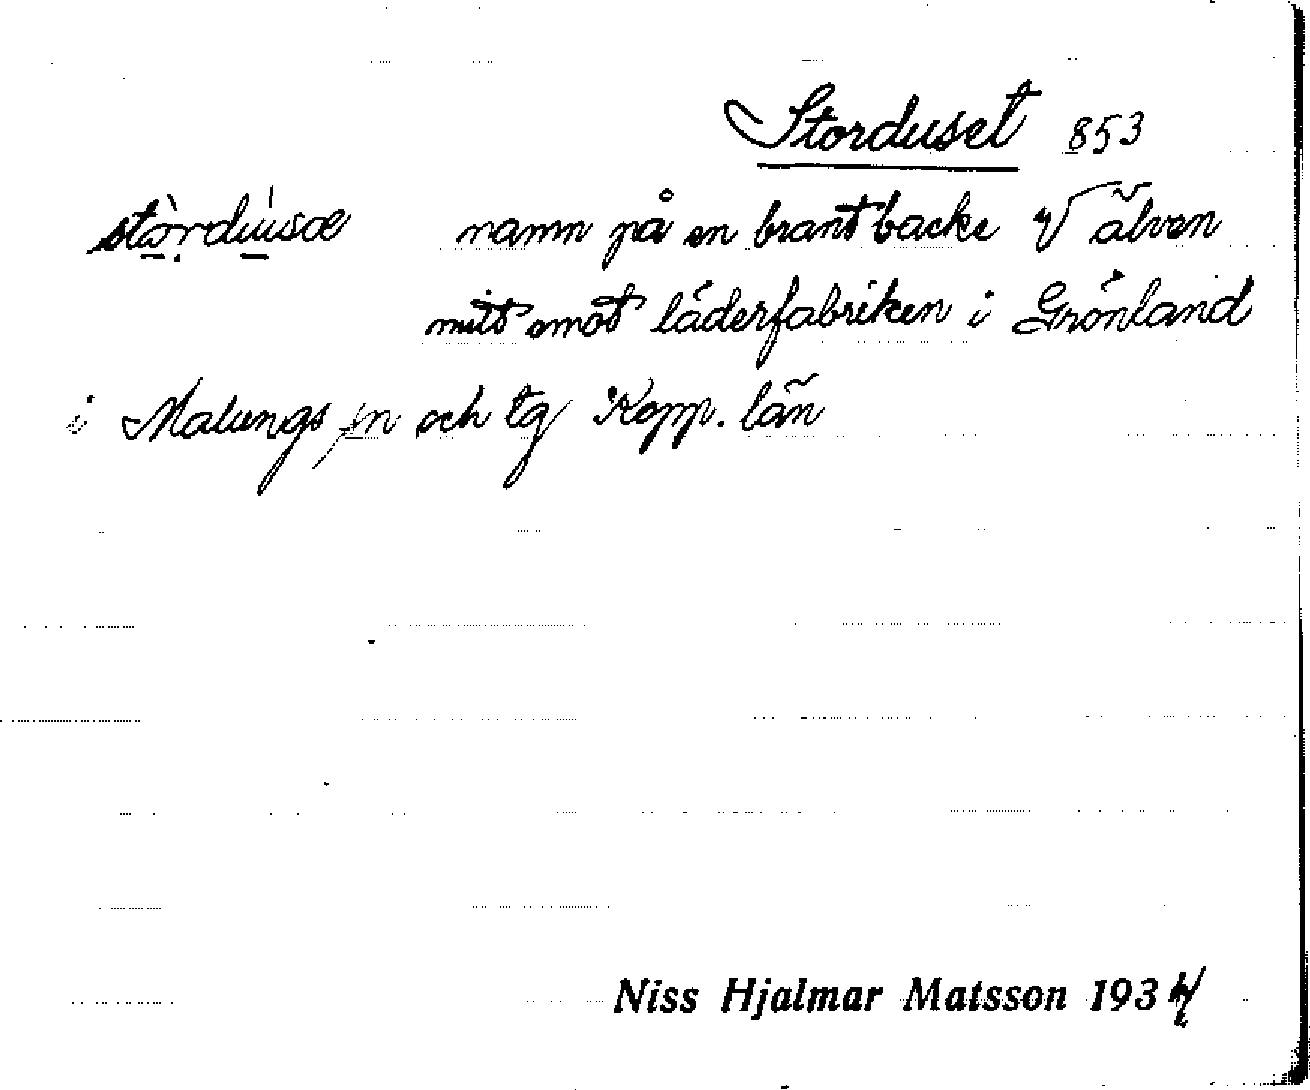 Storduset 853
stòrdúsæ namn på en brant backe V älven
mitt emot läderfabriken i Grönland
i Malungs sn och tg Kopp. län
Niss Hjalmar Matsson 1934